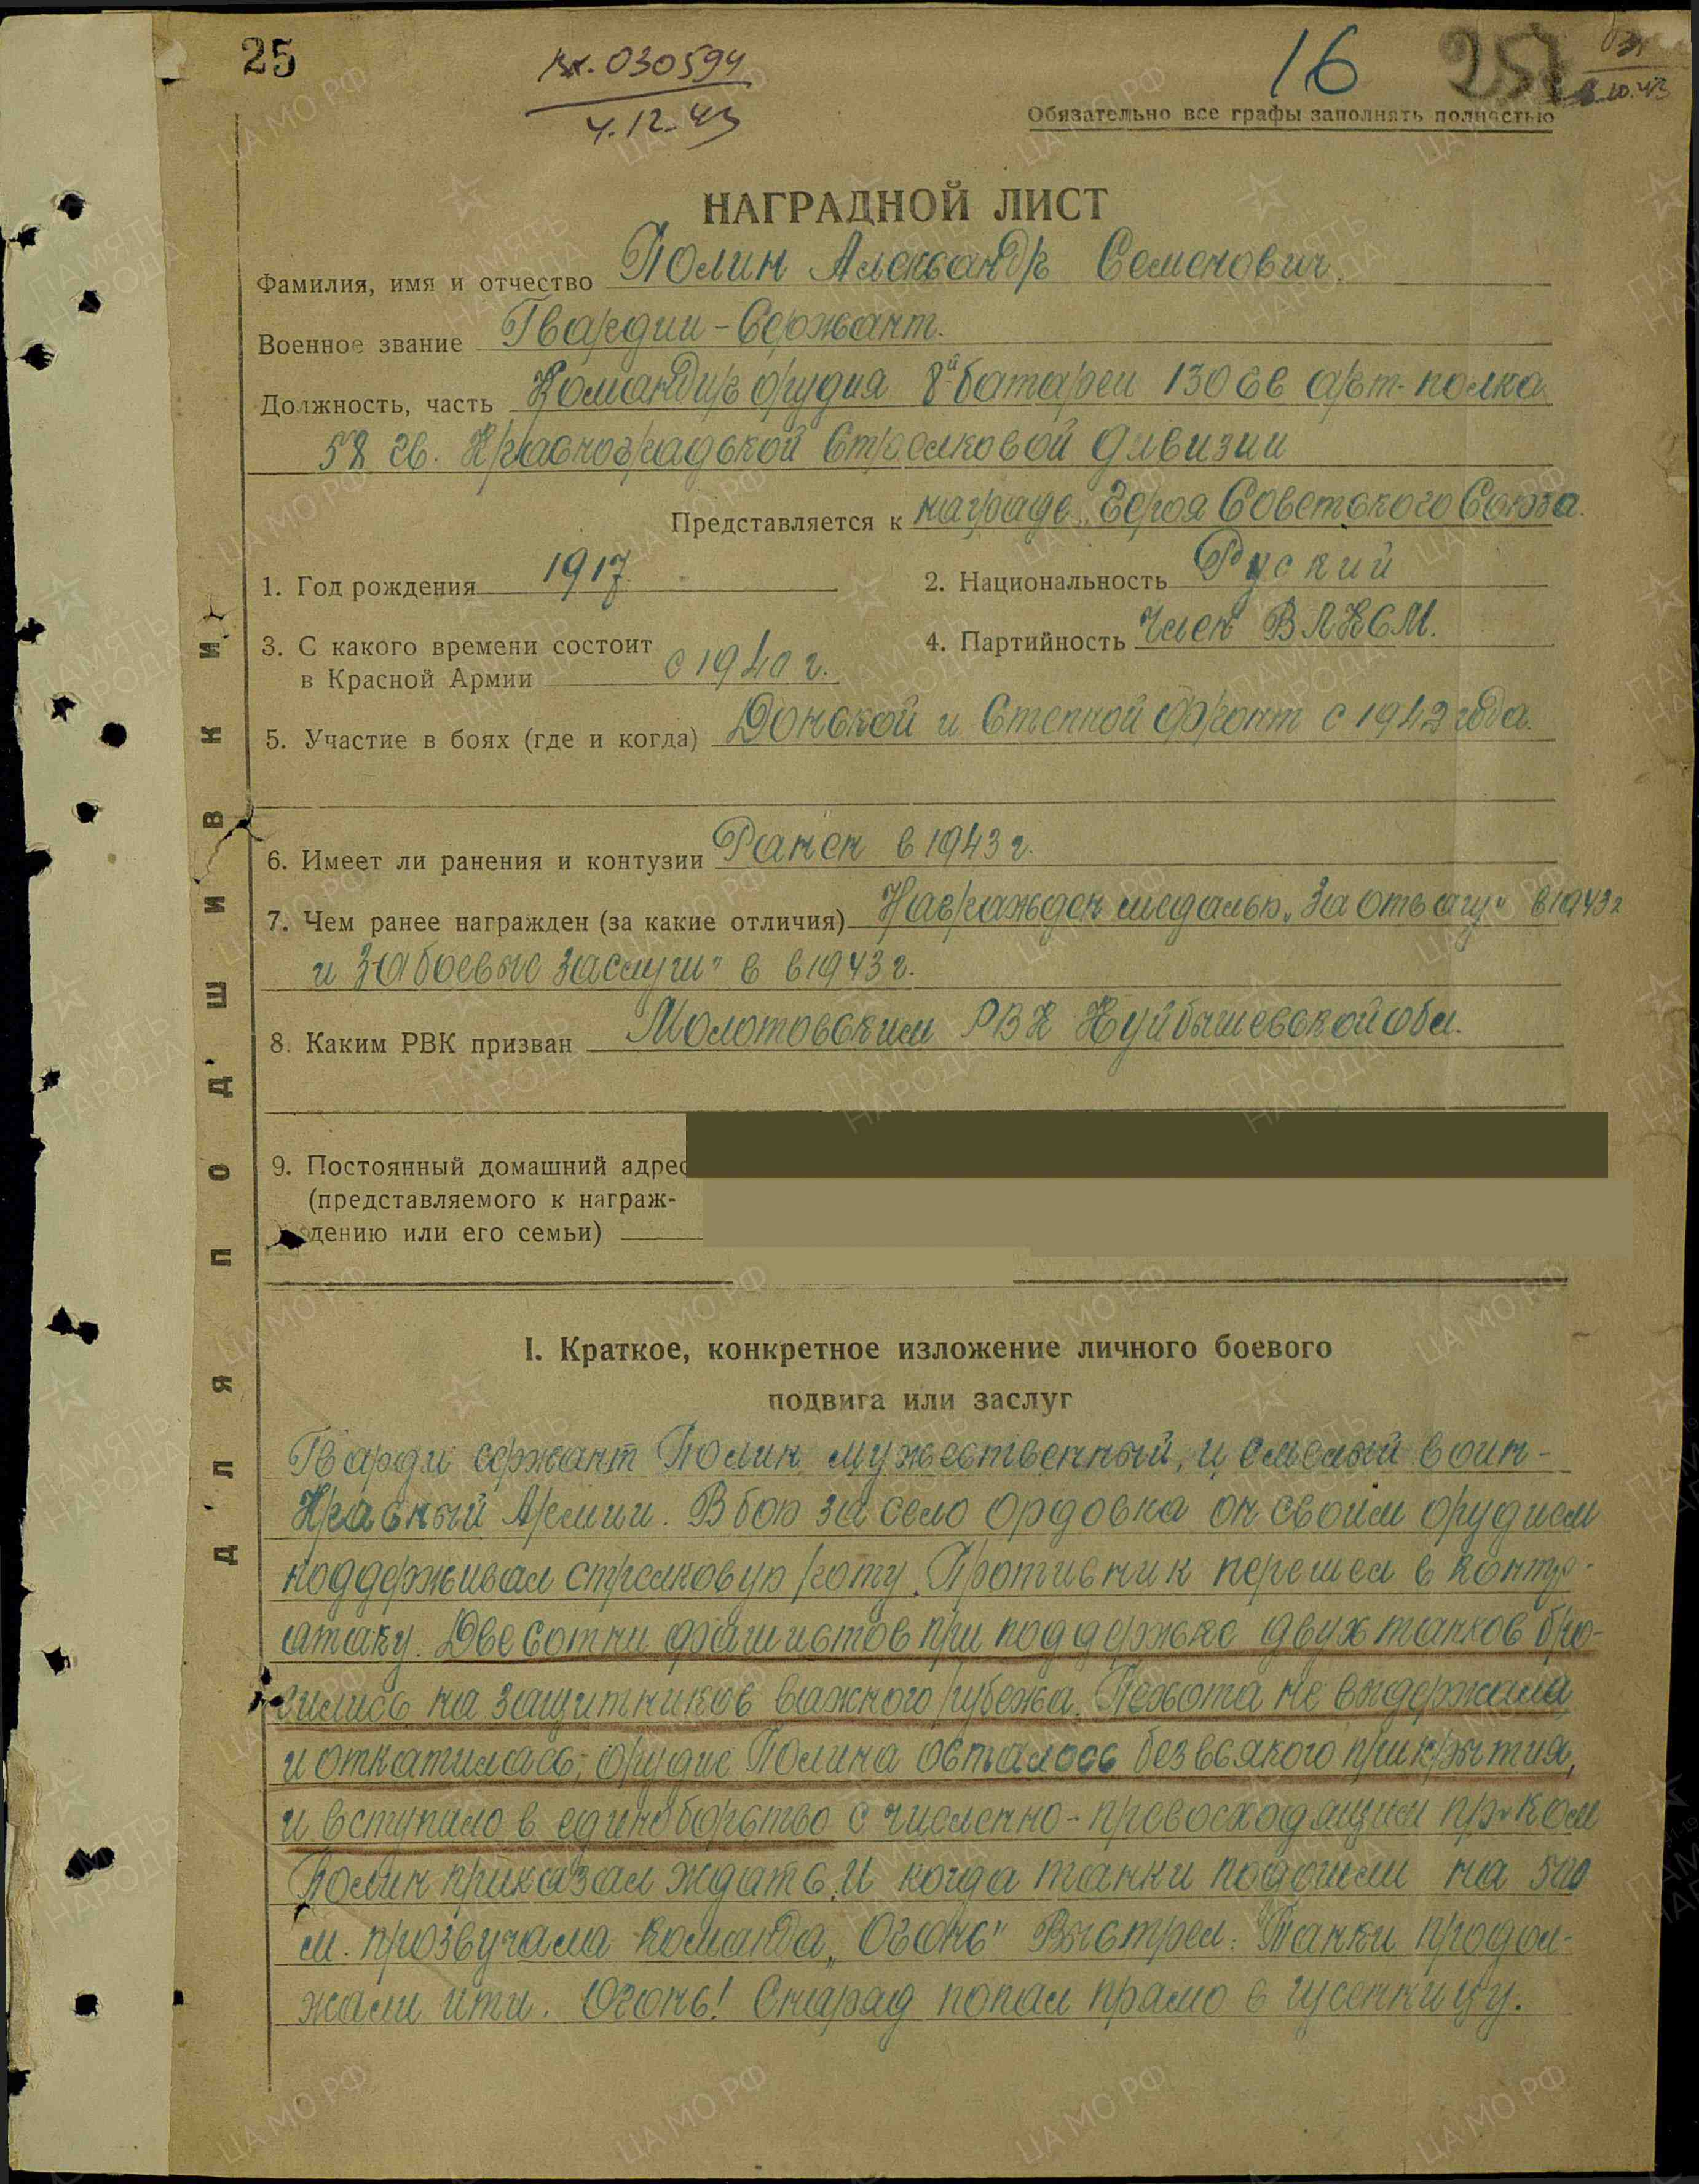 25
Вх. 030594
4.12.43
16
257
10.43
Обязательно все графы заполнять полностью
НАГРАДНОЙ ЛИСТ
Фамилия, имя и отчество Полин Александр Семенович.
Военное звание Гвардии - Сержант.
Должность, часть Командир орудия 8й батареи 130 гв арт-полка
58 гв. Красноградской Стрелковой дивизии
Представляется к награде „Героя Советского Союза.
1. Год рождения 1917. 2. Национальность Руский
3. С какого времени состоит
в Красной Армии с 1940 г.
4. Партийность Член ВЛКСМ.
5. Участие в боях (где и когда) Донской и Степной Фронт с 1942 года.
6. Имеет ли ранения и контузии Ранен в 1943 г.
7. Чем ранее награжден (за какие отличия) Награжден медалью „За отвагу" в 1943 г
и За боевые заслуги" в в 1943 г.
8. Каким РВК призван Молотовским РВК Куйбышевской обл.
9. Постоянный домашний адрес
(представляемого к награж-
дению или его семьи)
ДЛЯ ПОДШИВКИ
I. Краткое, конкретное изложение личного боевого
подвига или заслуг
Гварди сержант Полин мужественный, и смелый воин-
Красный Армии. В бою за село Ордовка он своим орудием
поддерживал стрелковую роту. Противник перешел в контр-
атаку. Две сотни фашистов при поддержке двух танков бро-
сились на защитников важного рубежа. Пехота не выдержала
и откатилась, орудие Полина осталось без всякого прикрытия,
и вступило в единоборство с численно-превосходящим пр-ком
Полин приказал ждать. И когда танки подошли на 500
м. прозвучала команда „Огонь" Выстрел. Танки продол-
жали ити. Огонь! Снаряд попал прямо в гусенницу.